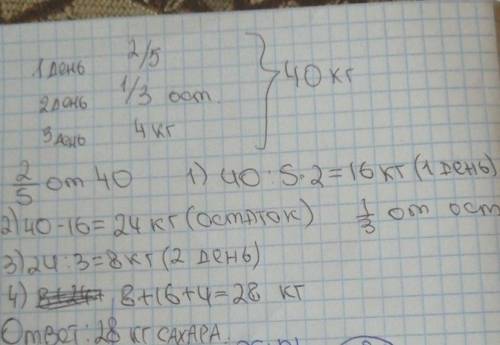 1 день 2/5
2 день 1/3 ост.
3 день 4 кг
} 40 кг
2/5 от 40 1) 40:5·2=16 кг (1 день)
2) 40-16=24 кг (остаток) 1/3 от ост
3) 24:3=8 кг (2 день)
4) 8+16+4=28 кг
Ответ: 28 кг сахара.